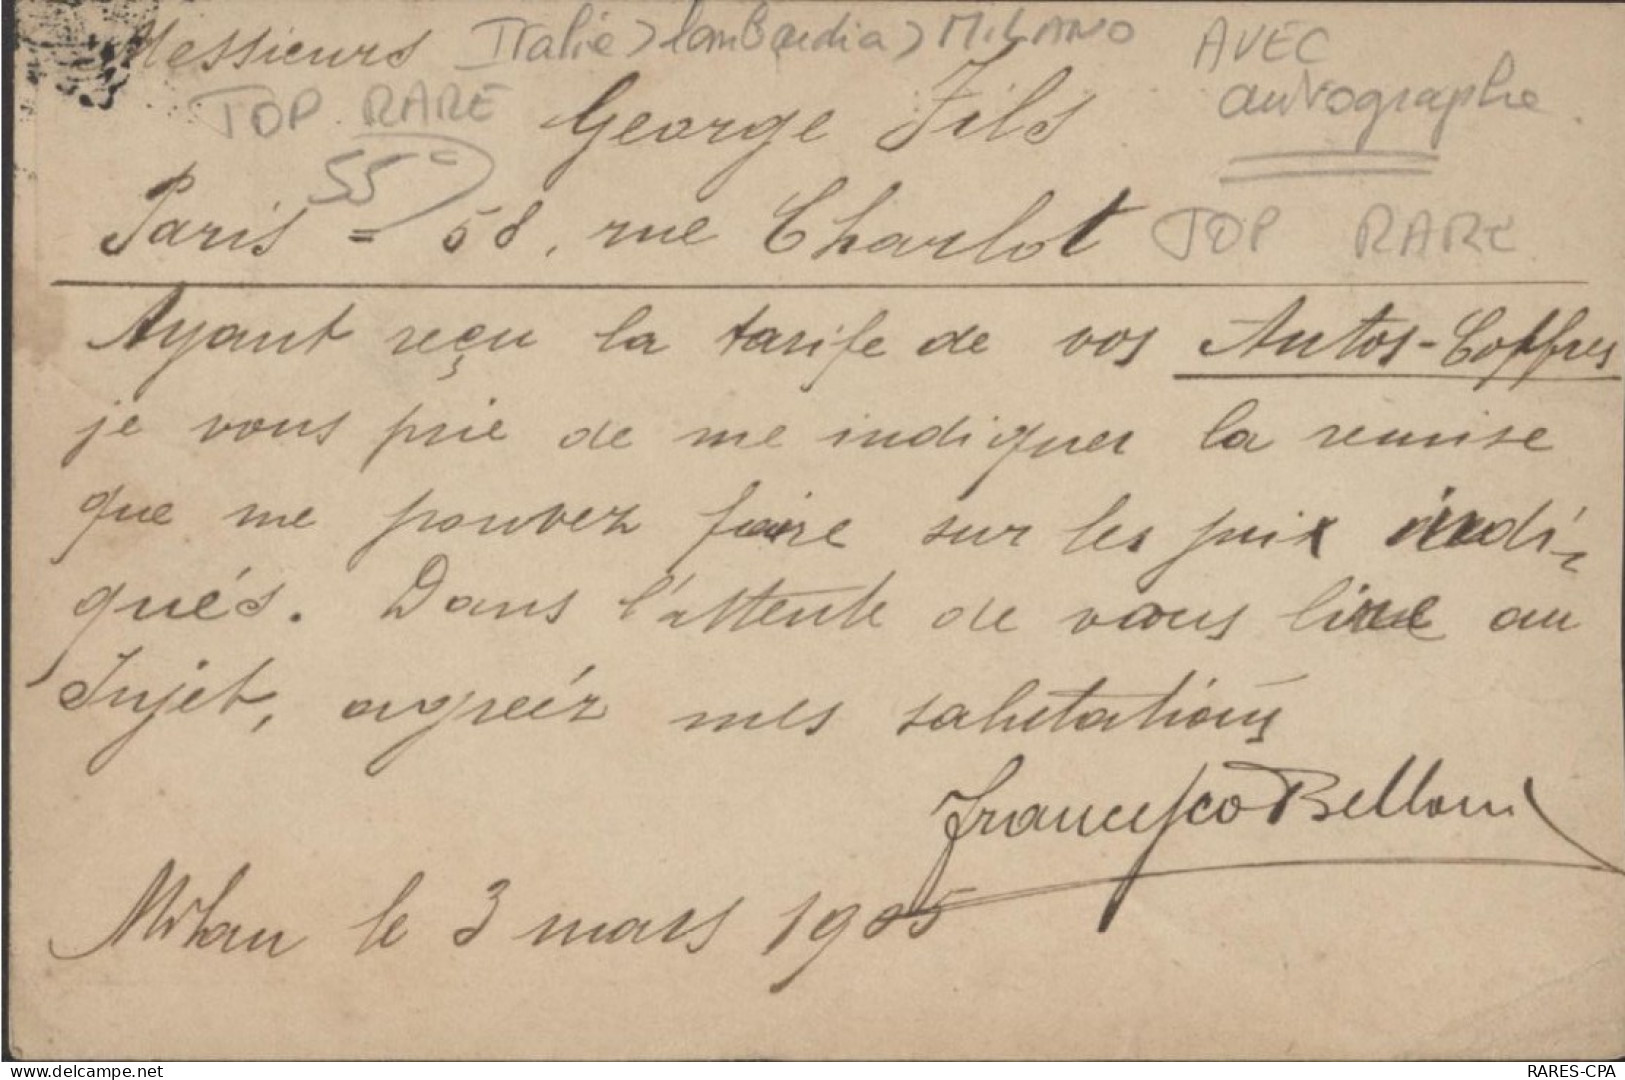 Messieurs Italie > lombardia > MILANO AVEC
TOP RARE George Fils autographe
55 €
Paris = 58, rue Charlot TOP RARE
Ayant reçu la tarife de vos Autos-Coffres
je vous prie de me indiquer la remise
que me pouvez faire sur les prix indi-
qués. Dans l'attente de vous lire au
sujet, agréér mes salutations
Francesco Belloni
Milan le 3 mars 1905
delcampe.net
RARES-CPA